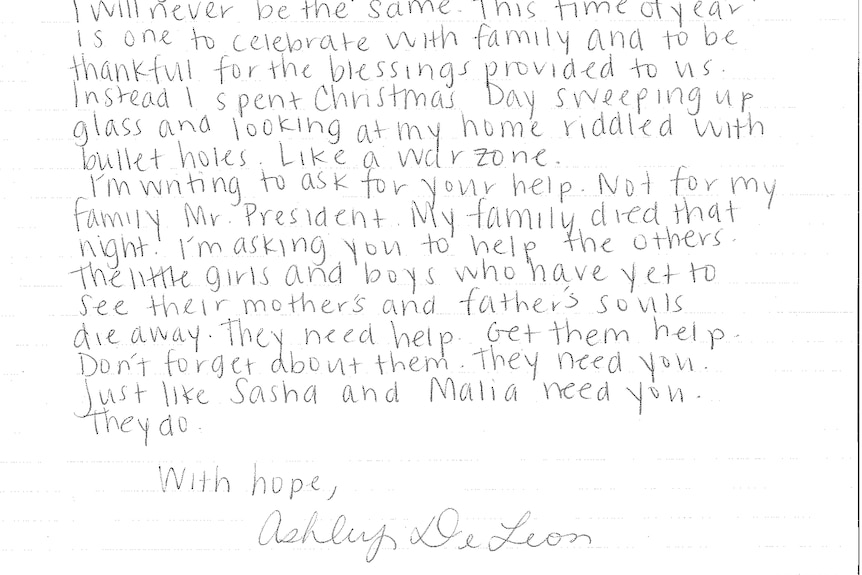 I will never be the same. This time of year
is one to celebrate with family and to be
thankful for the blessings provided to us.
Instead I spent Christmas Day sweeping up
glass and looking at my home riddled with
bullet holes. Like a war zone.
I'm writing to ask for your help. Not for my
family Mr. President. My family died that
night. I'm asking you to help the others.
The little girls and boys who have yet to
see their mother's and father's souls
die away. They need help. Get them help.
Don't forget about them. They need you.
Just like Sasha and Malia need you.
They do.
With hope,
Ashley De Leon